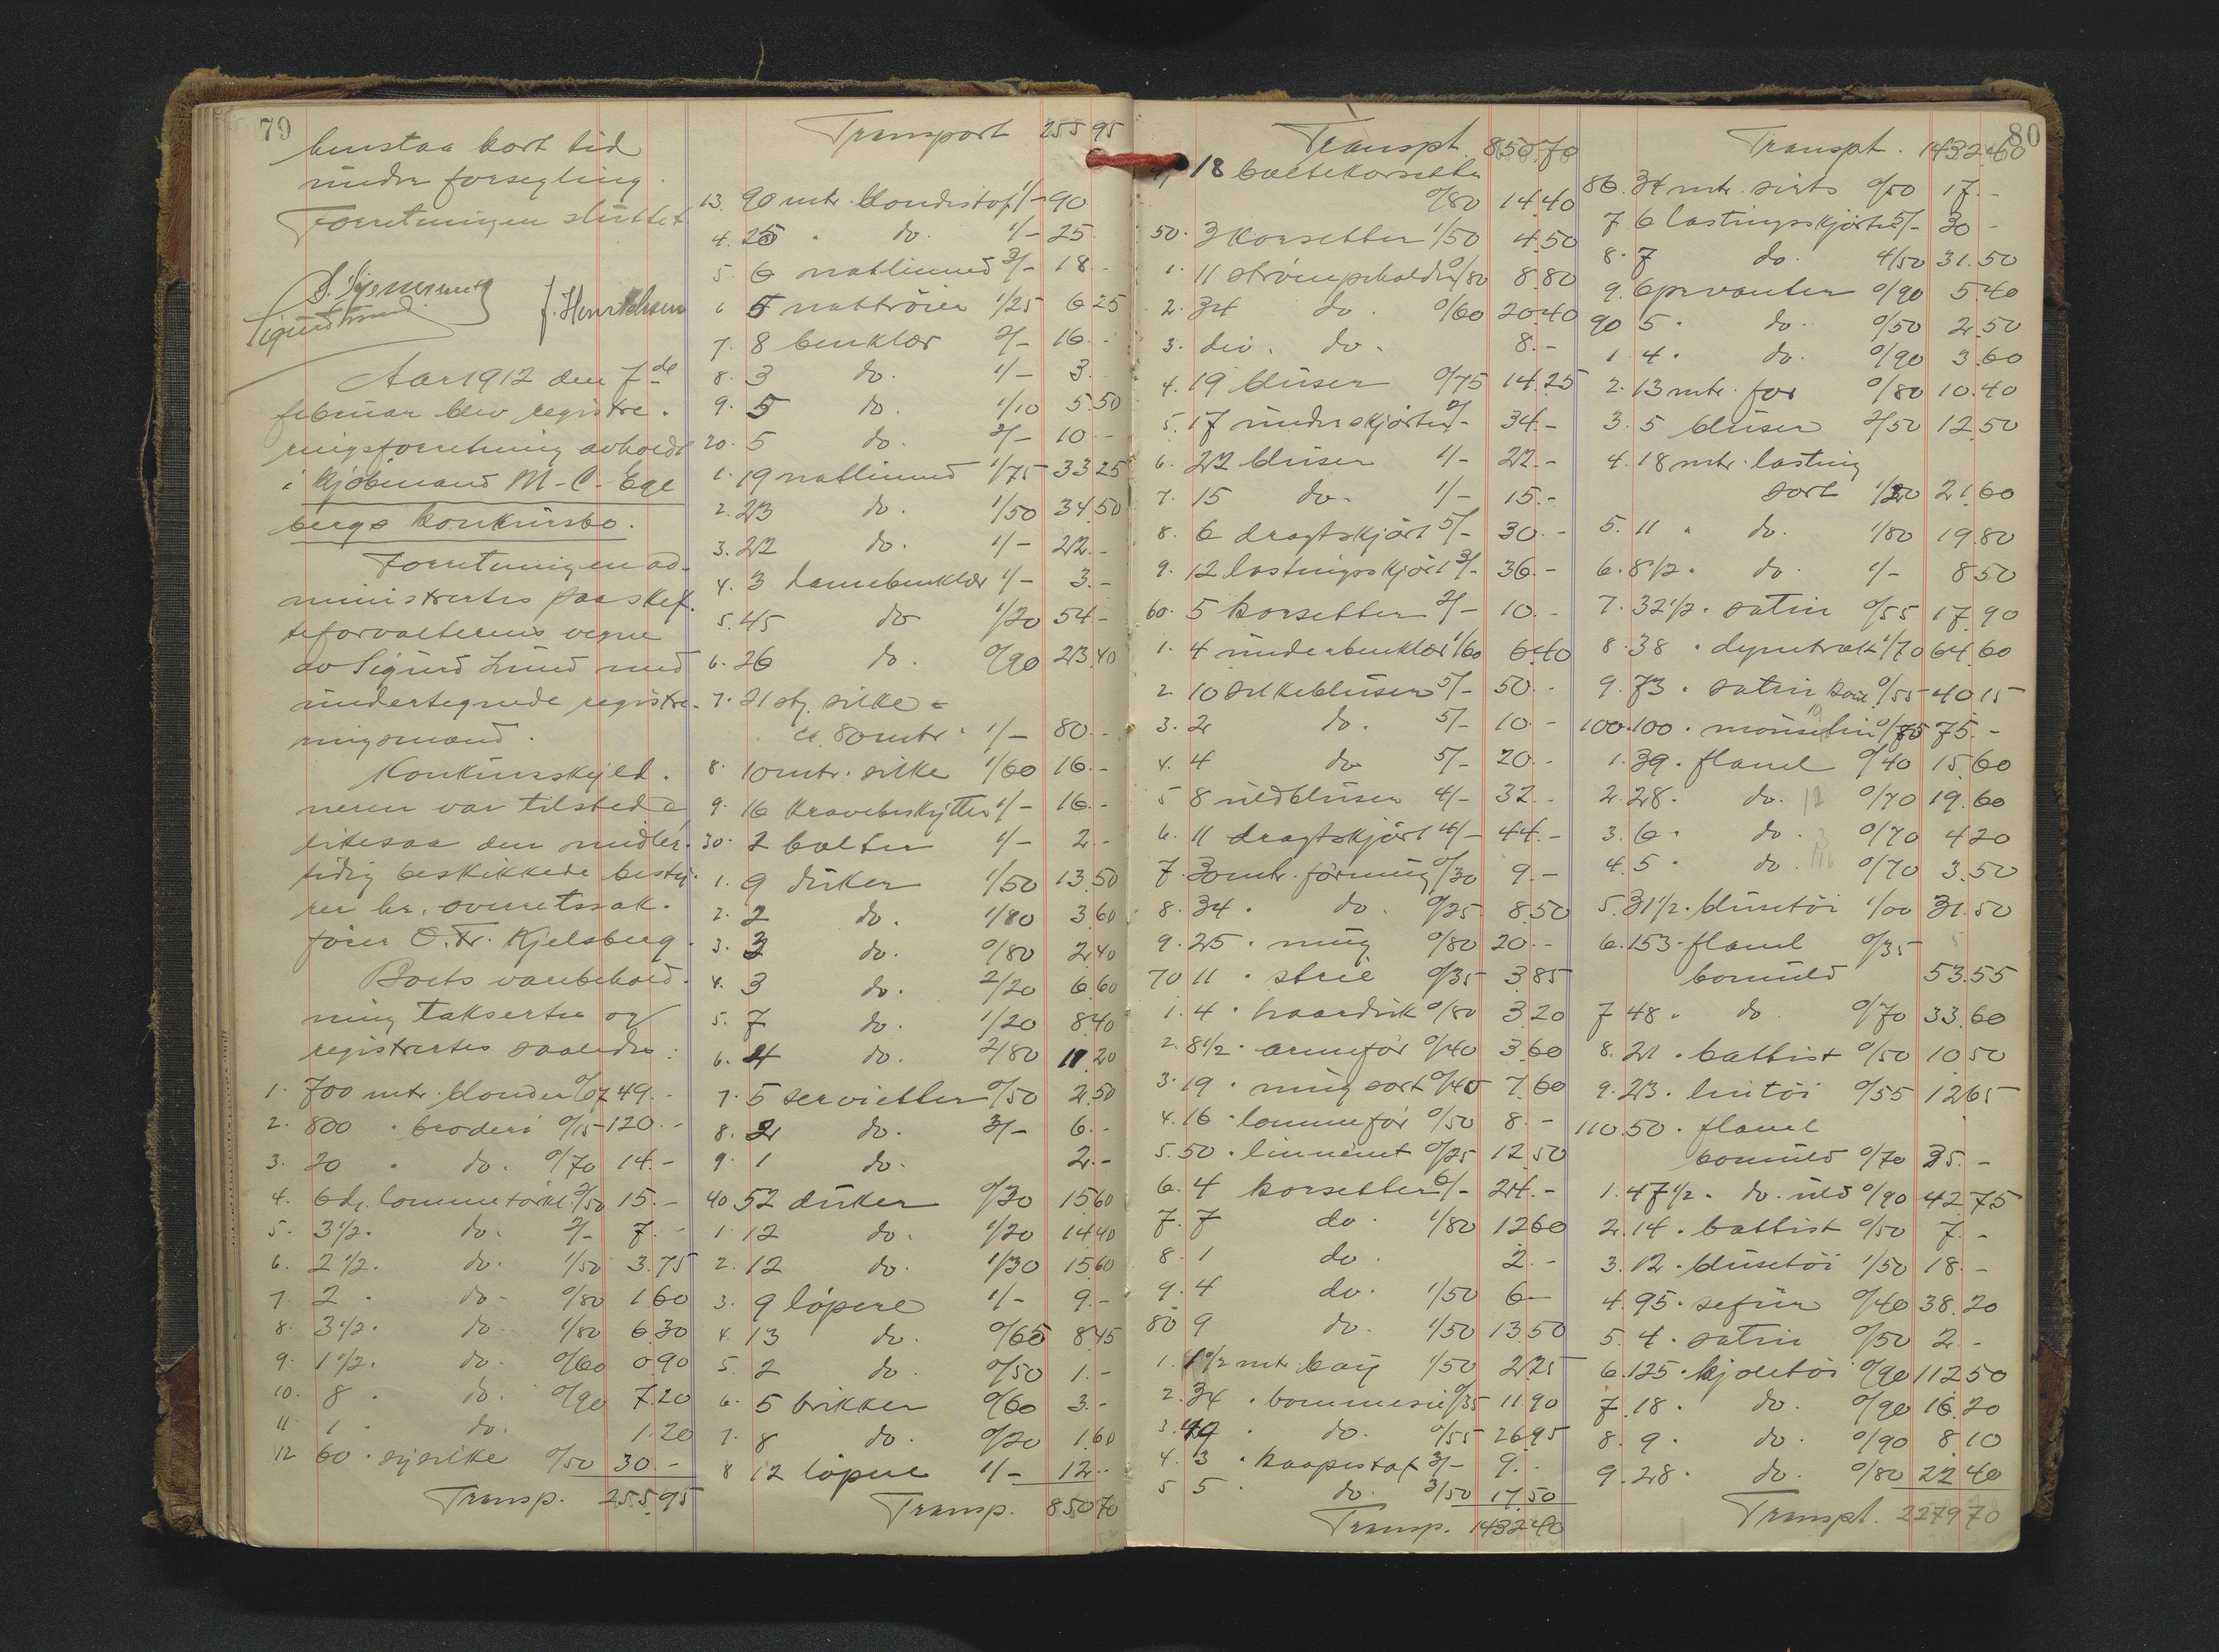 79
henstaa kort tid
under forsegling.
Forretningen sluttet
Sigurd Lund
J. Henrichsen
Aar 1912 den 7de
februar blev registre-
ringsforretning avholdt
i Kjøbmand M. C. Ege
bergs konkursbo.
Forretningen ad-
ministrertes paa skif-
teforvalterens vegne
av Sigurd Lund med
undertegnede registre-
ringsmænd.
Konkursskyld-
neren var tilstede
likesaa den midler-
tidig beskikkede besty-
rer hr. overretssak-
fører O. Fr. Kjelsberg.
Boets varebehold-
ning taksertes og
registrertes saaledes:
1. 700 mtr. blonder 0/07 49.-
2. 800 " broderi 0/15 120.-
3. 20 " do. 0/70 14.-
4. 6 d. lommetørkl. 2/50 15.-
5. 3 1/2 " do. 2/- 7.-
6. 2 1/2 " do. 1/50 3.75
7. 2 " do. 0/80 1.60
8. 3 1/2 " do. 1/80 6.30
9. 1 1/2 " do. 0/60 0.90
10. 8 " do. 0/90 7.20
11. 1 " do. 1.20
12 60 " sysilke 0/50 30.-
Transp. 255.95
Transport 255 95
13. 90 mtr. blondestof 1/- 90
4. 25 " do. 1/- 25
5. 6 natlinned 3/- 18.-
6 5 nattrøier 1/25 6 25
7. 8 benklær 2/- 16.-
8. 3 do. 1/- 3.
9. 5 do. 1/10 5.50
20. 5 do. 2/- 10.-
1. 19 natlinned 1/75 33 25
2. 23 do. 1/50 34.50
3. 22 do. 1/- 22.-
4. 3 damebenklær 1/- 3.-
5. 45 do 1/20 54.-
6. 26 do. 0/90 23.40
7. 21 stk. silke =
ca. 80 mtr. 1/- 80.-
8. 10 mtr. silke 1/60 16.-
9. 16 kravebeskytter 1/- 16.-
30. 2 belter 1/- 2.-
1. 9 duker 1/50 13.50
2. 2 do. 1/80 3 60
3. 3 do. 0/80 2.40
4. 3 do. 2/20 6.60
5. 7 do. 1/20 8.40
6. 4 do. 2/80 11.20
7. 5 servietter 0/50 2.50
8. 2 do. 3/- 6.-
9. 1 do. 2.-
40 52 duker 0/30 15.60
1 12 do. 1/20 14.40
2. 12 do. 1/30 15.60
3. 9 løpere 1/- 9.-
4. 13 do. 0/65 8.45
5. 2 do. 0/50 1.-
6. 5 brikker 0/60 3.-
7. 8 do. 0/20 1.60
8 12 løpere 1/- 12.-
Transp. 850 70
Transpt. 850.70
18 beltekorsetter
0/80 14.40
50. 3 korsetter 1/50 4.50
1. 11 strømpeholdere 0/80 8.80
2. 34 do. 0/60 20.40
3. div. do. 8.-
4. 19 bluser 0/75 14.25
5. 17 underskjørter 2/- 34.-
6. 22 bluser 1/- 22.-
7. 15 do. 1/- 15.-
8. 6 dragtskjørt 5/- 30.-
9. 12 lastingsskjørt 3/- 36.-
60. 5 korsetter 2/- 10.-
1. 4 underbenklær 1/60 6.40
2. 10 silkebluser 5/- 50.-
3. 2 do. 5/- 10.-
4. 4 do 5/- 20.-
5 8 uldbluser 4/- 32.-
6. 11 dragtskjørt 4/- 44.-
7. 30 mtr. forning 0/30 9.-
8. 34 " do. 0/25 8.50
9. 25 " ming 0/80 20.-
70 11 " strie 0/35 3.85
1. 4 " haarduk 0/80 3.20
2. 8 1/2 " armefór 0/40 3.60
3. 19 " ming sort 0/40 7.60
4. 16 " lommefór 0/50 8.-
5. 50 " linneret 0/25 12.50
6. 4 korsetter 6/- 24.-
7. 7 do. 1/80 12 60
8. 1 do. 2.-
9. 4 do. 1/50 6-
80 9 do. 1/50 13.50
1. 1 1/2 mtr. boy 1/50 2.25
2. 34 " bommesie 0/35 11.90
3. 49 " do. 0/55 26.95
4. 3 " kaapestof 3/- 9.-
5 5 " do. 3/50 17.50
Transp. 1432.40
80
Transpt. 1432 40
86. 34 mtr. sirts 0/50 17.-
7 6 lastingsskjørter 5/- 30 -
8. 7 do. 4/50 31.50
9. 6 pr vanter 0/90 5.40
90 5 " do. 0/50 2.50
1. 4 " do. 0/90 3.60
2. 13 mtr. for 0/80 10.40
3. 5 bluser 2/50 12.50
4. 18 mtr. lasting
sort 1/20 21.60
5. 11 " do. 1/80 19.80
6. 8 1/2 " do. 1/- 8.50
7. 32 1/2 " satin 0/55 17.90
8. 38 " dynetræk 1/70 64.60
9. 73 " satin 0/55 40 15
100. 100 " mouselin 0/75 75.-
1. 39 " flanel 0/40 15.60
2. 28 " do. 0/70 19.60
3. 6 " do. 0/70 4 20
4. 5 " do. 0/70 3.50
5. 31 1/2 " blusetøi 1/00 31.50
6. 153 " flanel 0/35
bomuld 53.55
7 48 " do. 0/70 33.60
8. 21 " battist 0/50 10.50
9. 23 " lintøi 0/55 12.65
110. 50 " flanel
bomuld 0/70 35.-
1. 47 1/2 " do. uld 0/90 42.75
2. 14 " battist 0/50 7.-
3. 12 " blusetøi 1/50 18.-
4. 95 " sefir 0/40 38.20
5. 4 " satin 0/50 2.-
6. 125 " kjoletøi 0/90 112 50
7. 18 " do. 0/90 16.20
8. 9 " do. 0/90 8.10
9. 28 " do. 0/80 22.40
Transpt. 2279 70